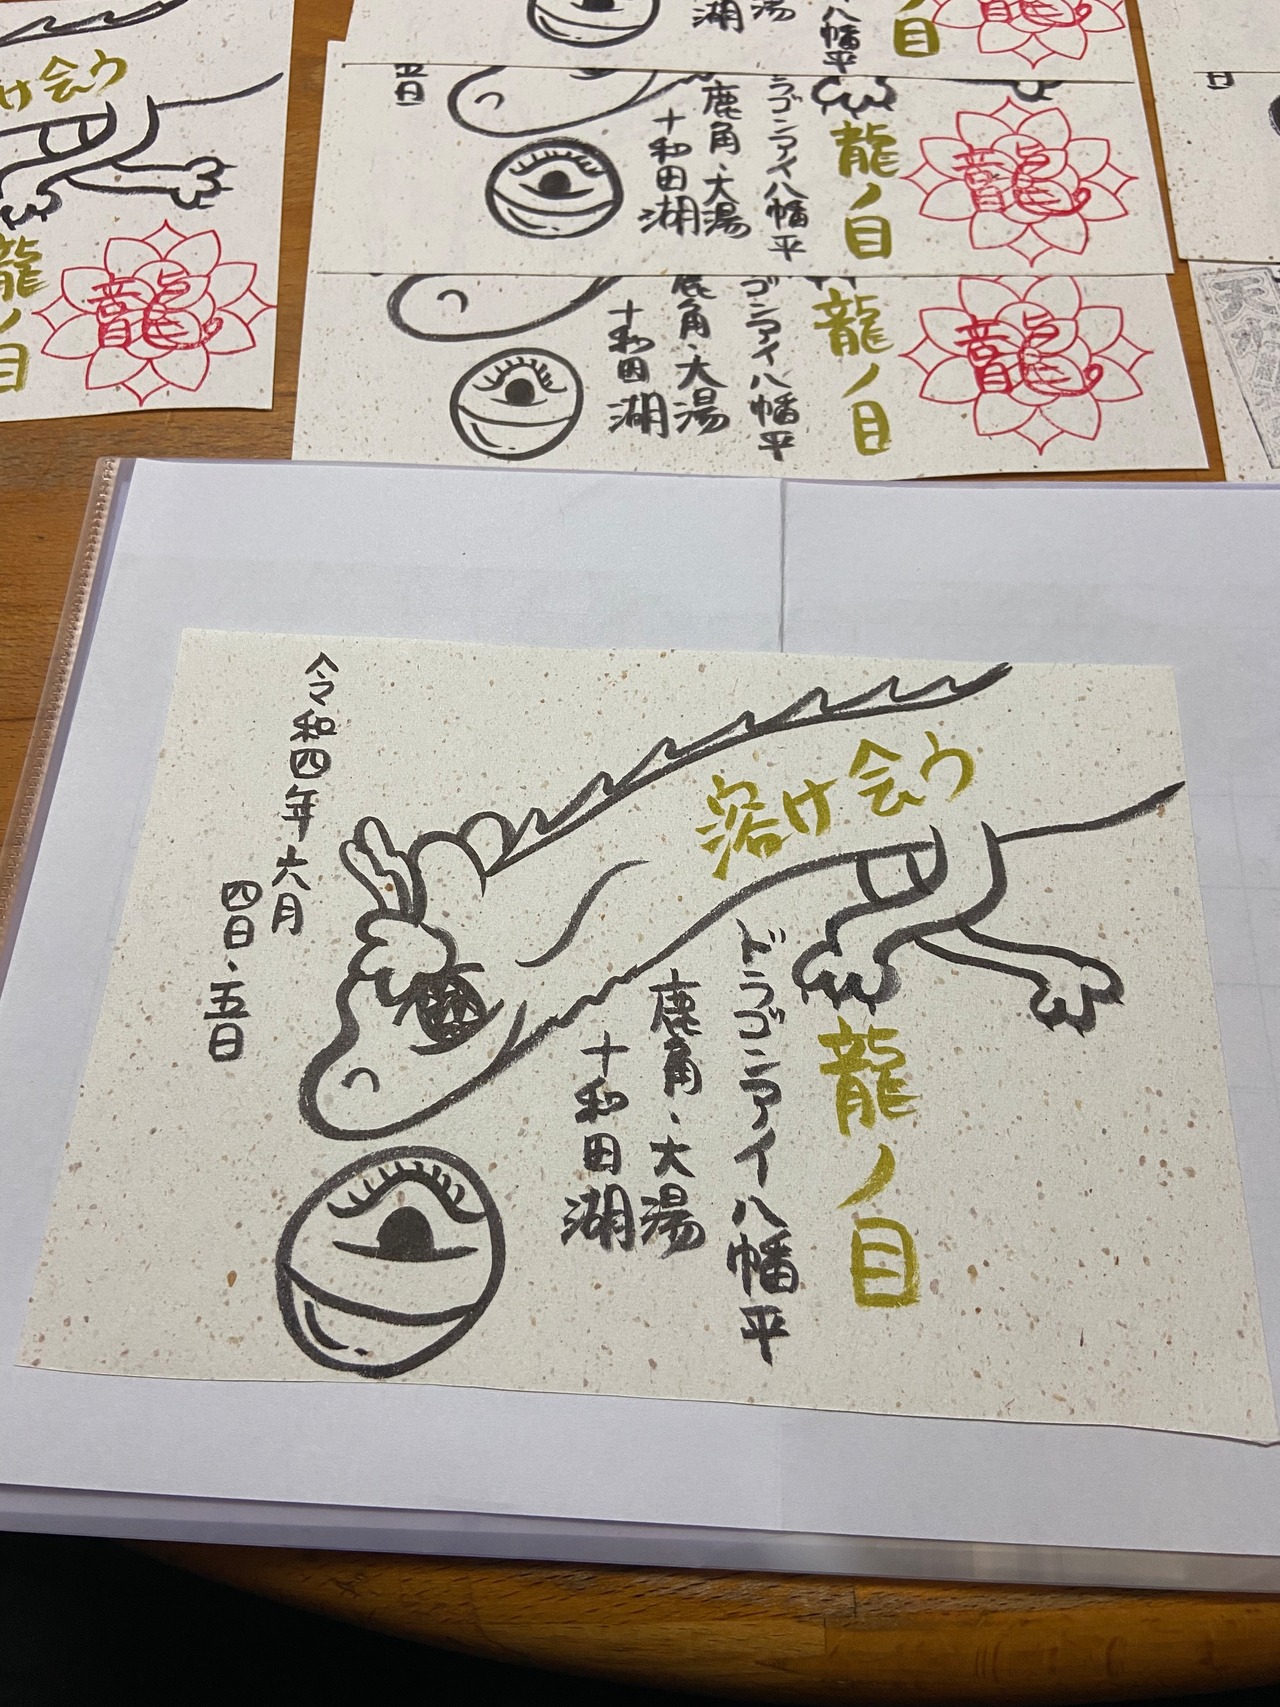 溶け会う
龍ノ目
ドラゴンアイ八幡平
鹿角・大湯
十和田湖
令和四年六月
四日・五日
け会う
龍ノ目
龍
湯
湖
八幡平
目
龍
五日
龍ノ目
ドラゴンアイ八幡平
鹿角・大湯
十和田湖
龍
龍ノ目
ゴンアイ八幡平
鹿角・大湯
十和田湖
龍
日
天